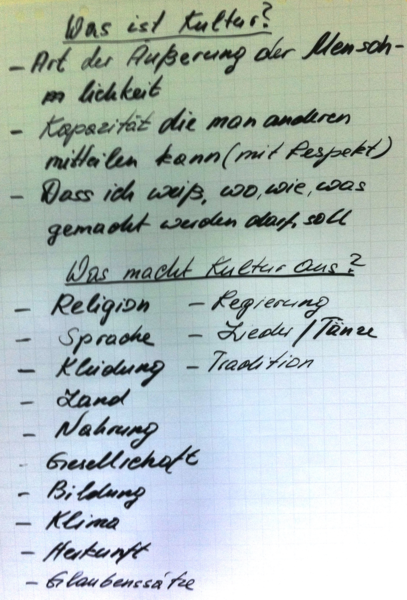 Was ist Kultur?
- Art der Äußerung der Mensch-
lichkeit
- Kapazität die man anderen
mitteilen kann (mit Respekt)
- Dass ich weiß, wo, wie, was
gemacht werden darf, soll
Was macht Kultur aus?
- Religion - Regierung
- Sprache - Lieder / Tänze
- Kleidung - Tradition
- Land
- Nahrung
- Gesellschaft
- Bildung
- Klima
- Herkunft
- Glaubenssätze